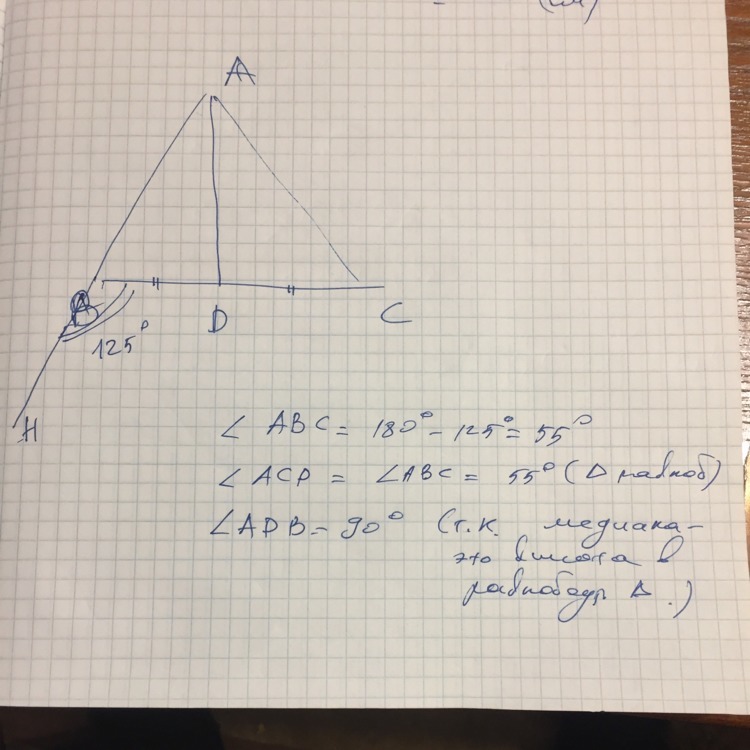 A
B
D
C
125°
H
∠ ABC = 180° - 125° = 55°
∠ ACD = ∠ABC = 55° (Δ равноб)
∠ADB = 90° (т.к. медиана-
это высота в
равнобедр Δ.)